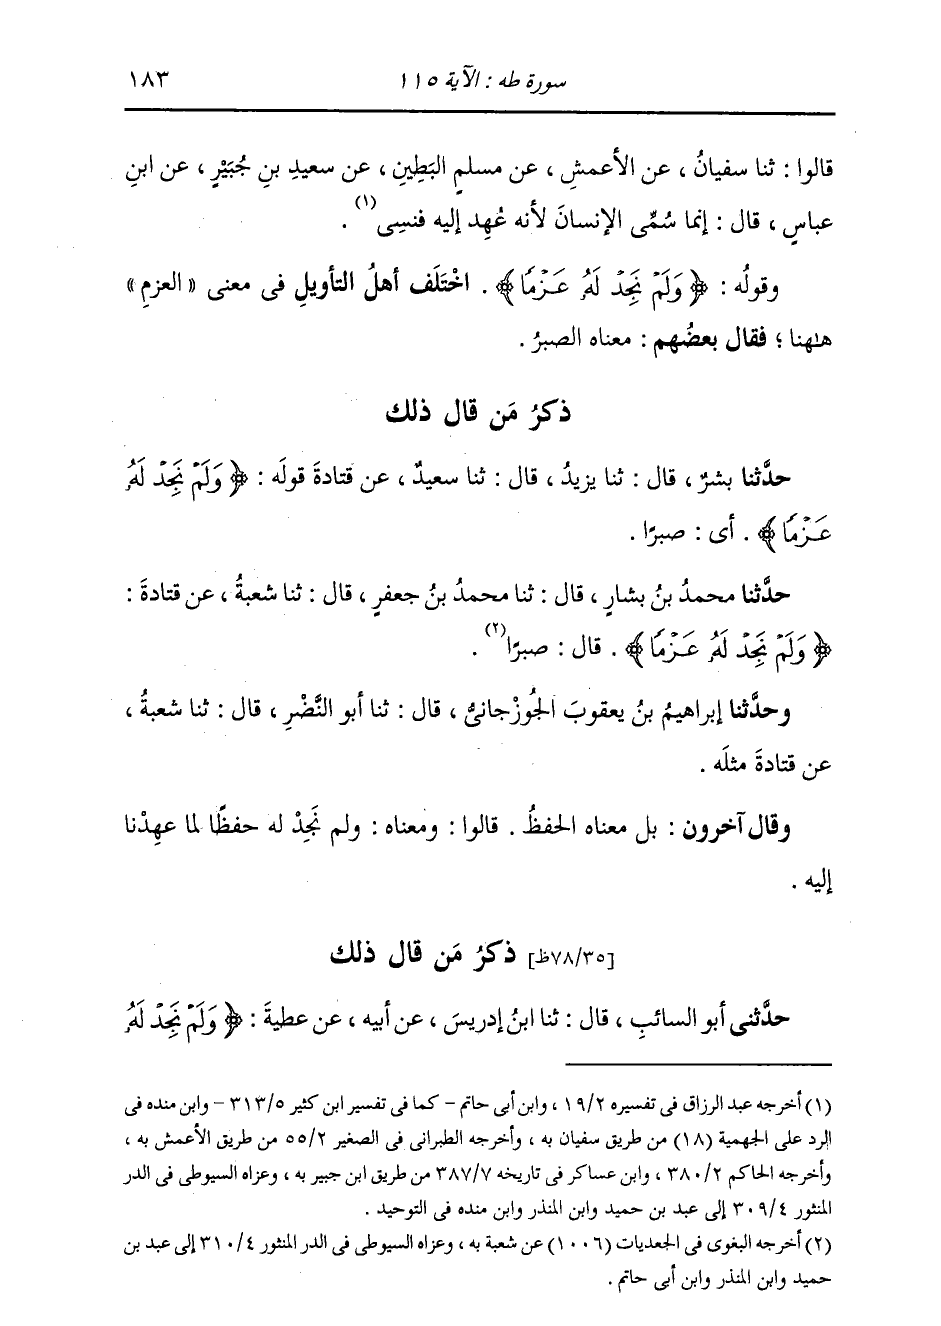 سورة طه : الآية ١١٥ ١٨٣
قالوا : ثنا سفيانُ ، عن الأعمشِ ، عن مسلمٍ البَطِينِ ، عن سعيدِ بنِ جُبَيْرٍ ، عن ابنِ
عباسٍ ، قال : إنما سُمِّى الإنسانَ لأنه عُهِد إليه فنسِى(١) .
وقولُه : ﴿ وَلَمْ نَجِدْ لَهُ عَزْمًا ﴾ . اخْتَلَف أهلُ التأويلِ فى معنى « العزمِ »
هلهنا ؛ فقال بعضُهم : معناه الصبرُ .
ذكرُ مَن قال ذلك
حدَّثنا بشرٌ ، قال : ثنا يزيدُ ، قال : ثنا سعيدٌ ، عن قتادةَ قولَه : ﴿ وَلَمْ نَجِدْ لَهُ
عَزْمًا ﴾ . أى : صبرًا .
حدَّثنا محمدُ بنُ بشارٍ ، قال : ثنا محمدُ بنُ جعفرٍ ، قال : ثنا شعبةُ ، عن قتادةَ :
﴿ وَلَمْ نَجِدْ لَهُ عَزْمًا ﴾ . قال : صبرًا(٢) .
وحدَّثنا إبراهيمُ بنُ يعقوبَ الجُوزْجانىُّ ، قال : ثنا أبو النَّضْرِ ، قال : ثنا شعبةُ ،
عن قتادةَ مثلَه .
وقال آخرون : بل معناه الحفظُ . قالوا : ومعناه : ولم نَجِدْ له حفظًا لما عهِدْنا
إليه .
[٧٨/٣٥ظ] ذكرُ مَن قال ذلك
حدَّثنى أبو السائبِ ، قال : ثنا ابنُ إدريسَ ، عن أبيه ، عن عطيةَ : ﴿ وَلَمْ نَجِدْ لَهُ
(١) أخرجه عبد الرزاق فى تفسيره ١٩/٢ ، وابن أبى حاتم - كما فى تفسير ابن كثير ٣١٣/٥ - وابن منده فى
الرد على الجهمية (١٨) من طريق سفيان به ، وأخرجه الطبرانى فى الصغير ٥٥/٢ من طريق الأعمش به ،
وأخرجه الحاكم ٣٨٠/٢ ، وابن عساكر فى تاريخه ٣٨٧/٧ من طريق ابن جبير به ، وعزاه السيوطى فى الدر
المنثور ٣٠٩/٤ إلى عبد بن حميد وابن المنذر وابن منده فى التوحيد .
(٢) أخرجه البغوى فى الجعديات (١٠٠٦) عن شعبة به ، وعزاه السيوطى فى الدر المنثور ٣١٠/٤ إلى عبد بن
حميد وابن المنذر وابن أبى حاتم .